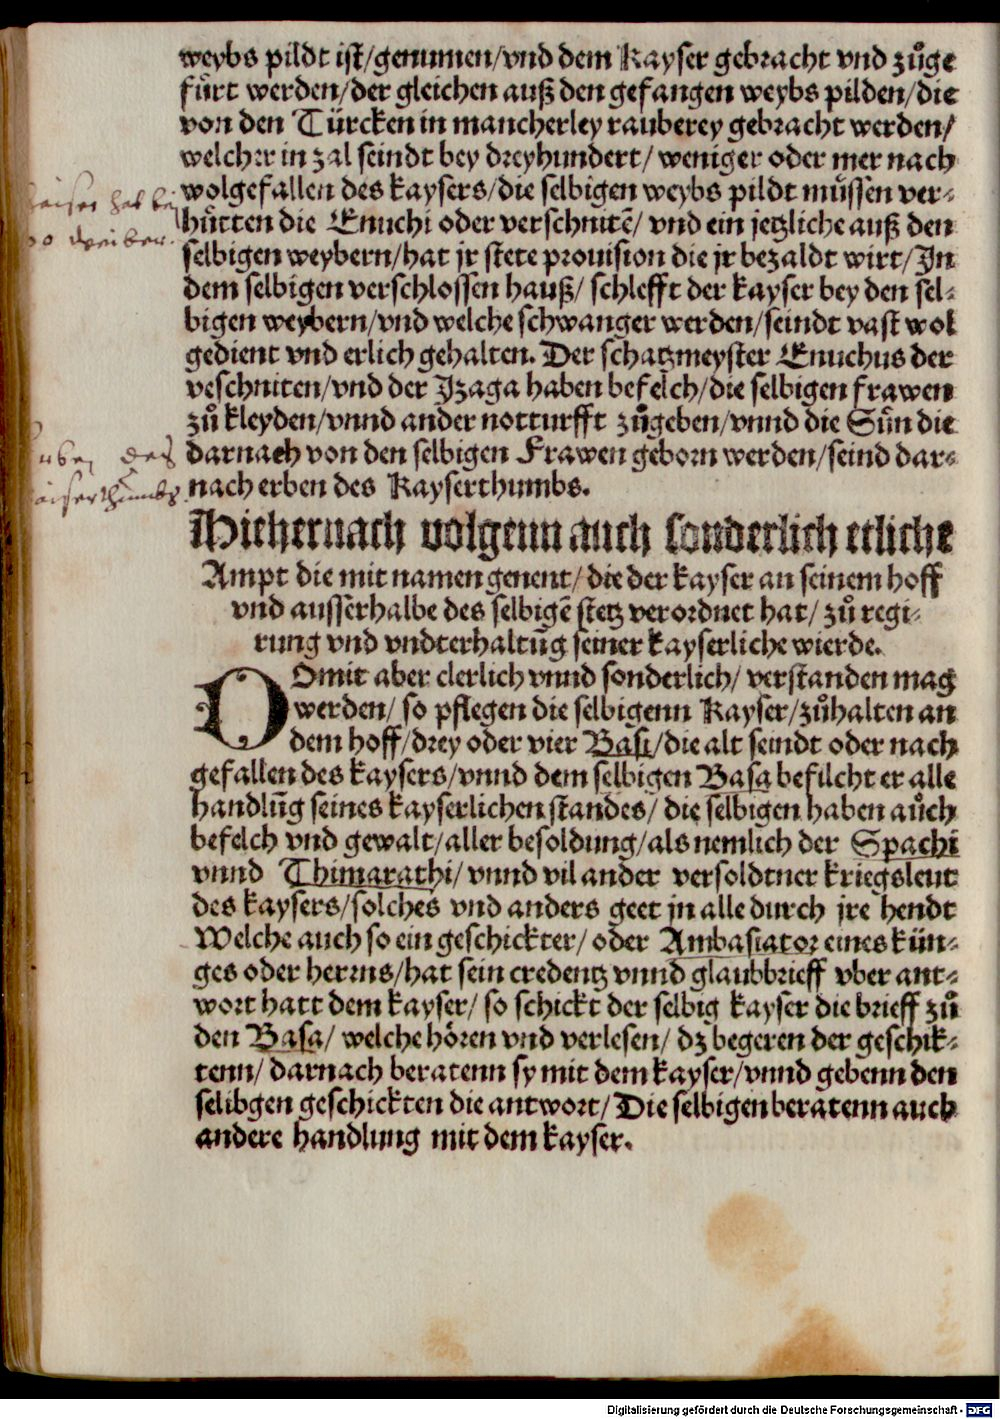 weybs pildt ist/genumen/vnd dem Kayser gebracht vnd zůge
fürt werden/der gleichen auß den gefangen weybs pilden/die
von den Türcken in mancherley rauberey gebracht werden/
welcher in zal seindt bey dreyhundert/ weniger oder mer nach
wolgefallen des kaysers/die selbigen weybs pildt müssen ver⸗
hütten die Enuchi oder verschnitē/ vnd ein jetzliche auß den
selbigen weybern/hat jr stete prouision die jr bezaldt wirt/In
dem selbigen verschlossen hauß/ schlefft der kayser bey den sel⸗
bigen weybern/vnd welche schwanger werden/seindt vast wol
gedient vnd erlich gehalten. Der schatzmeyster Enuchus der
veschniten/vnd der Izaga haben befelch/die selbigen frawen
zů kleyden/vnnd ander notturfft zůgeben/vnnd die Sün die
darnach von den selbigen Frawen geborn werden/seind dar⸗
nach erben des Kayserthumbs.
des
Hiehernach volgenn auch sonderlich etliche
Ampt die mit namen genent/die der kayser an seinem hoff
vnd ausserhalbe des selbigē stetz verordnet hat/ zů regi⸗
rung vnd vndterhaltūg seiner kayserliche wierde.
DOmit aber clerlich vnnd sonderlich/ verstanden mag
werden/ so pflegen die selbigenn Kayser/zůhalten an
dem hoff/drey oder vier Basi/die alt seindt oder nach
gefallen des kaysers/vnnd dem selbigen Basa befilcht er alle
handlūg seines kayserlichen standes/ die selbigen haben aůch
befelch vnd gewalt/aller besoldung/als nemlich der Spachi
vnnd Thimarathi/ vnnd vil ander versoldtner kriegsleut
des kaysers/solches vnd anders geet in alle durch jre hendt
Welche auch so ein geschickter/ oder Ambasiator eines kün⸗
ges oder herrns/hat sein credentz vnnd glaubbrieff vber ant⸗
wort hatt dem kayser/ so schickt der selbig kayser die brieff zů
den Basa/ welche hören vnd verlesen/ dz begeren der geschik⸗
tenn/ darnach beratenn sy mit dem kayser/vnnd gebenn den
selibgen geschickten die antwort/ Die selbigen beratenn auch
andere handlung mit dem kayser.
Digitalisierung gefördert durch die Deutsche Forschungsgemeinschaft - DFG